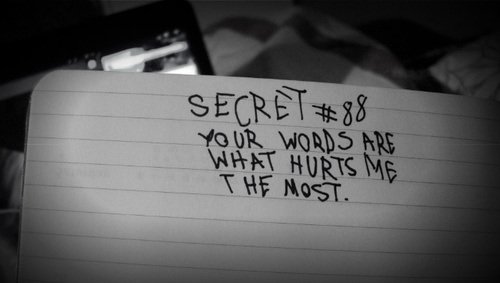 SECRET #88
YOUR WORDS ARE
WHAT HURTS ME
THE MOST.